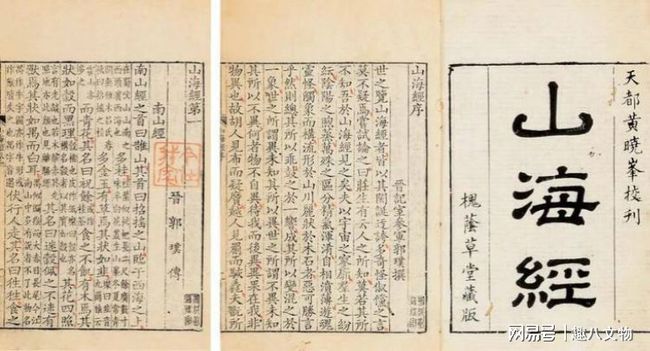 天都黃曉峯校刊
山海經
槐蔭草堂藏版
山海經序
晉記室參軍郭璞撰
世之覽山海經者皆以其閎誕迂誇多奇怪俶儻之言
莫不疑焉嘗試論之曰莊生有云人之所知莫若其所
不知吾於山海經見之矣夫以宇宙之寥廓羣生之紛
紜陰陽之煦蒸萬殊之區分精氣渾淆自相濆薄遊魂
靈怪觸象而構流形於山川麗狀於木石者惡可勝言
乎然則總其所以乖鼓之於一響成其所以變混之於
一象世之所謂異未知其所以異世之所謂不異未知
其所以不異何者物不自異待我而後異異果在我非
物異也故胡人見布而疑黂越人見罽而駭毳夫翫所
山海經第一
南山經
晉郭璞傳
南山經之首曰䧿山其首曰招搖之山臨于西海之上
多桂
多金玉有草焉其狀如韭
而青花其名曰祝餘食之不飢有木焉其
狀如穀而黑理其花四照
其名曰迷穀佩之不迷有
獸焉其狀如禺而白耳
伏行人走其名曰狌狌食之
网易号 | 趣八文物